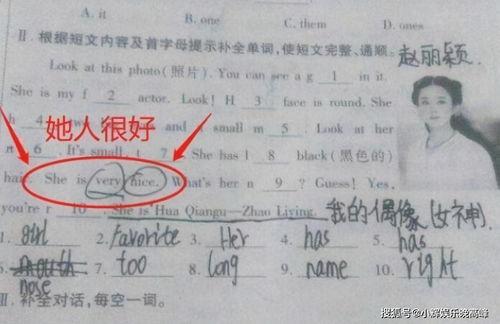 A. it B. one C. them D. ones
Ⅱ. 根据短文内容及首字母提示补全单词,使短文完整、通顺。 赵丽颖
Look at this photo(照片). You can see a g 1 in it.
She is my f 2 actor. Look! H 3 face is round. She
h 4 and small m 5 . Look at her
她人很好
6 . It's small, t 7 . She has l 8 black(黑色的)
hair. She is very nice. What's her n 9 ? Guess! Yes,
you're r 10 . She is Hua Qiangu—Zhao Liying. 我的偶像(女神)
1. girl 2. Favorite 3. Her 4. has 5. has
6. mouth nose 7. too 8. long 9. name 10. right
Ⅲ. 补全对话,每空一词。
搜狐号@小辉娱乐晓高峰